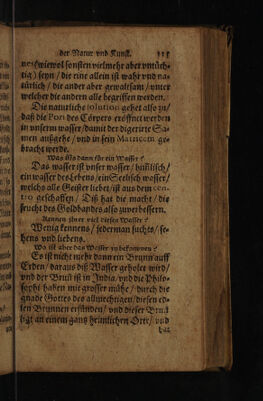 der Natur vnd Kunst. 115
nes (wiewol sonsten vielmehr aber vntüch-
tig) seyn / die eine allein ist wahr vnd na-
türlich / die ander aber gewaltsam / vnter
welcher die andern alle begrieffen seind.
Die natürliche solution gehet also zu /
daß die Pori des Cörpers eröffnet werden
in vnserm wasser / damit der digerirte Sa-
men außgehe / vnd in sein Matricem ge-
bracht werde.
Was ists dann für ein Wasser?
Das wasser ist vnser wasser / himlisch /
ein wasser des lebens / ein Seelisch wasser /
welchs alle Geister liebet / ist aus dem cen-
tro geschaffen / Diß hat die macht / die
feucht des Goldbandes also zuverbessern.
Kennen jhrer viel dieses Wasser?
Wenig kennens / jederman suchts / se-
hens vnd liebens.
Wo ist aber das Wasser zubekommen?
Es ist nicht mehr dann ein Brunn auff
Erden / daraus diß Wasser geholt wird /
vnd der Brun ist in India / vnd die Philo-
sophi haben mit grosser mühe / durch die
gnade Gottes des allmechtigen / diesen ed-
len Brunnen erfunden / vnd dieser Brun
ligt an einem gantz heimlichen Ort / vnd